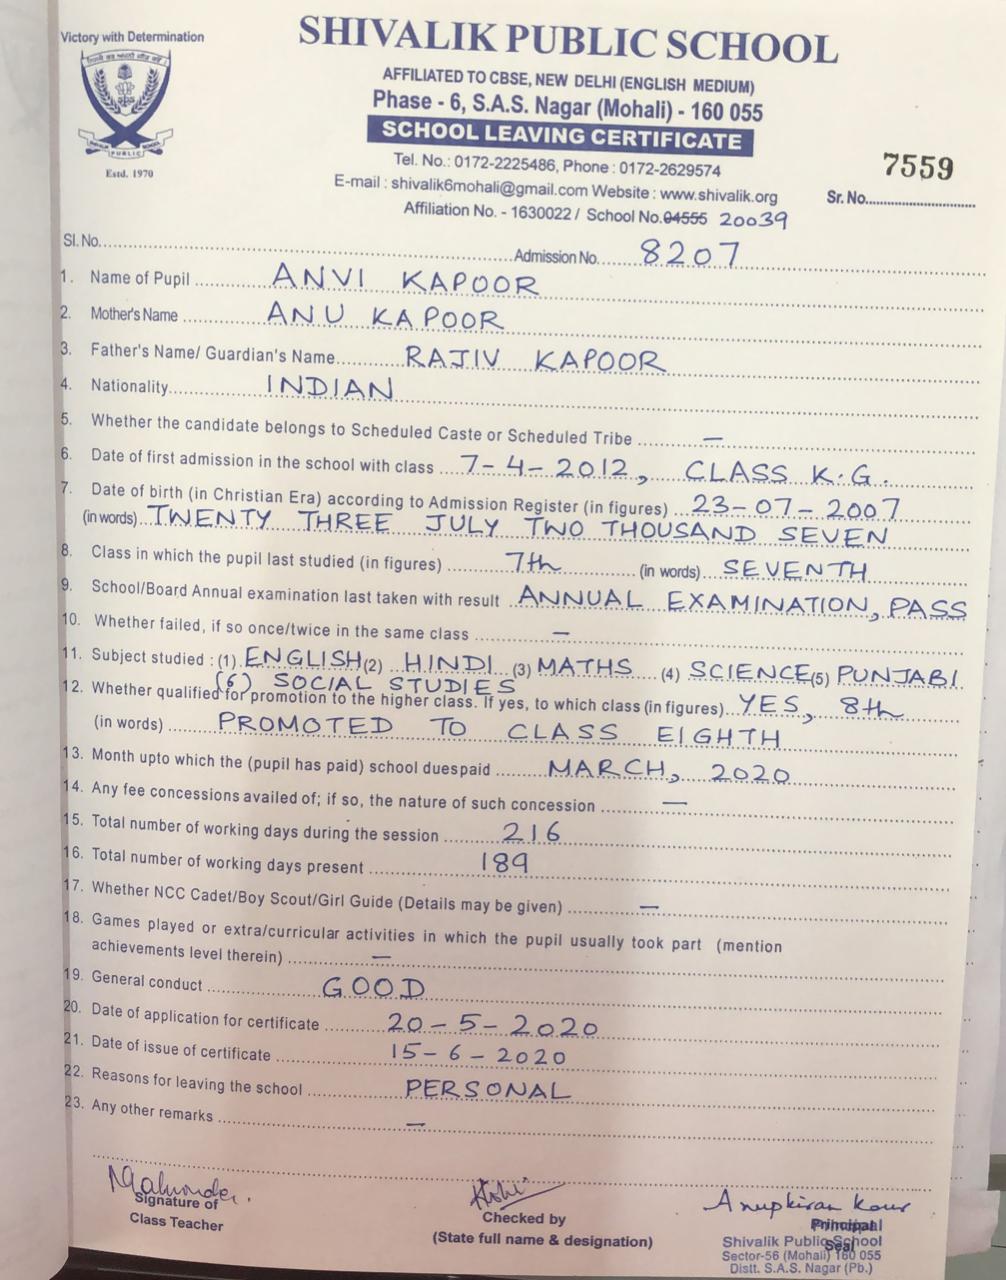 Victory with Determination
SHIVALIK PUBLIC SCHOOL
AFFILIATED TO CBSE, NEW DELHI (ENGLISH MEDIUM)
Phase - 6, S.A.S. Nagar (Mohali) - 160 055
SCHOOL LEAVING CERTIFICATE
PUBLIC
Estd. 1970
Tel. No.: 0172-2225486, Phone : 0172-2629574
E-mail : shivalik6mohali@gmail.com Website : www.shivalik.org
7559
Sr. No.
Affiliation No. - 1630022 / School No. 04555 20039
Sl. No. Admission No. 8207
1. Name of Pupil ANVI KAPOOR
2. Mother's Name ANU KAPOOR
3. Father's Name/ Guardian's Name RAJIV KAPOOR
4. Nationality INDIAN
5. Whether the candidate belongs to Scheduled Caste or Scheduled Tribe —
6. Date of first admission in the school with class 7-4-2012, CLASS K.G.
7. Date of birth (in Christian Era) according to Admission Register (in figures) 23-07-2007
(in words) TWENTY THREE JULY TWO THOUSAND SEVEN
8. Class in which the pupil last studied (in figures) 7th (in words) SEVENTH
9. School/Board Annual examination last taken with result ANNUAL EXAMINATION, PASS
10. Whether failed, if so once/twice in the same class —
11. Subject studied : (1) ENGLISH (2) HINDI (3) MATHS (4) SCIENCE (5) PUNJABI
(6) SOCIAL STUDIES
12. Whether qualified for promotion to the higher class. If yes, to which class (in figures) YES, 8th
(in words) PROMOTED TO CLASS EIGHTH
13. Month upto which the (pupil has paid) school duespaid MARCH, 2020
14. Any fee concessions availed of; if so, the nature of such concession —
15. Total number of working days during the session 216
16. Total number of working days present 189
17. Whether NCC Cadet/Boy Scout/Girl Guide (Details may be given) —
18. Games played or extra/curricular activities in which the pupil usually took part (mention
achievements level therein) —
19. General conduct GOOD
20. Date of application for certificate 20-5-2020
21. Date of issue of certificate 15-6-2020
22. Reasons for leaving the school PERSONAL
23. Any other remarks —
Anupkiran Kaur
Signature of
Class Teacher
Checked by
(State full name & designation)
Principal
Principal
Shivalik Public School
Seal
Sector-56 (Mohali) 160 055
Distt. S.A.S. Nagar (Pb.)